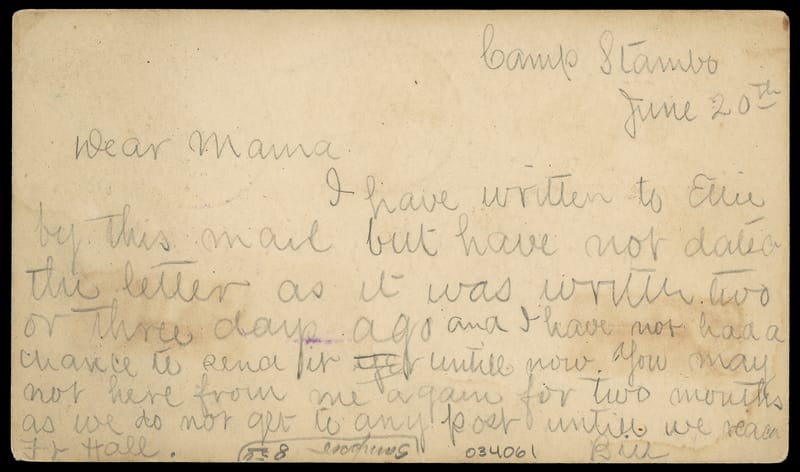 Camp Stambo
June 20th
Dear Mama
I have written to Effie
by this mail but have not dated
the letter as it was written two
or three days ago and I have not had a
chance to send it untill now. You may
not here from me again for two months
as we do not get to any post untill we reach
Ft Hall.
034061
Bill